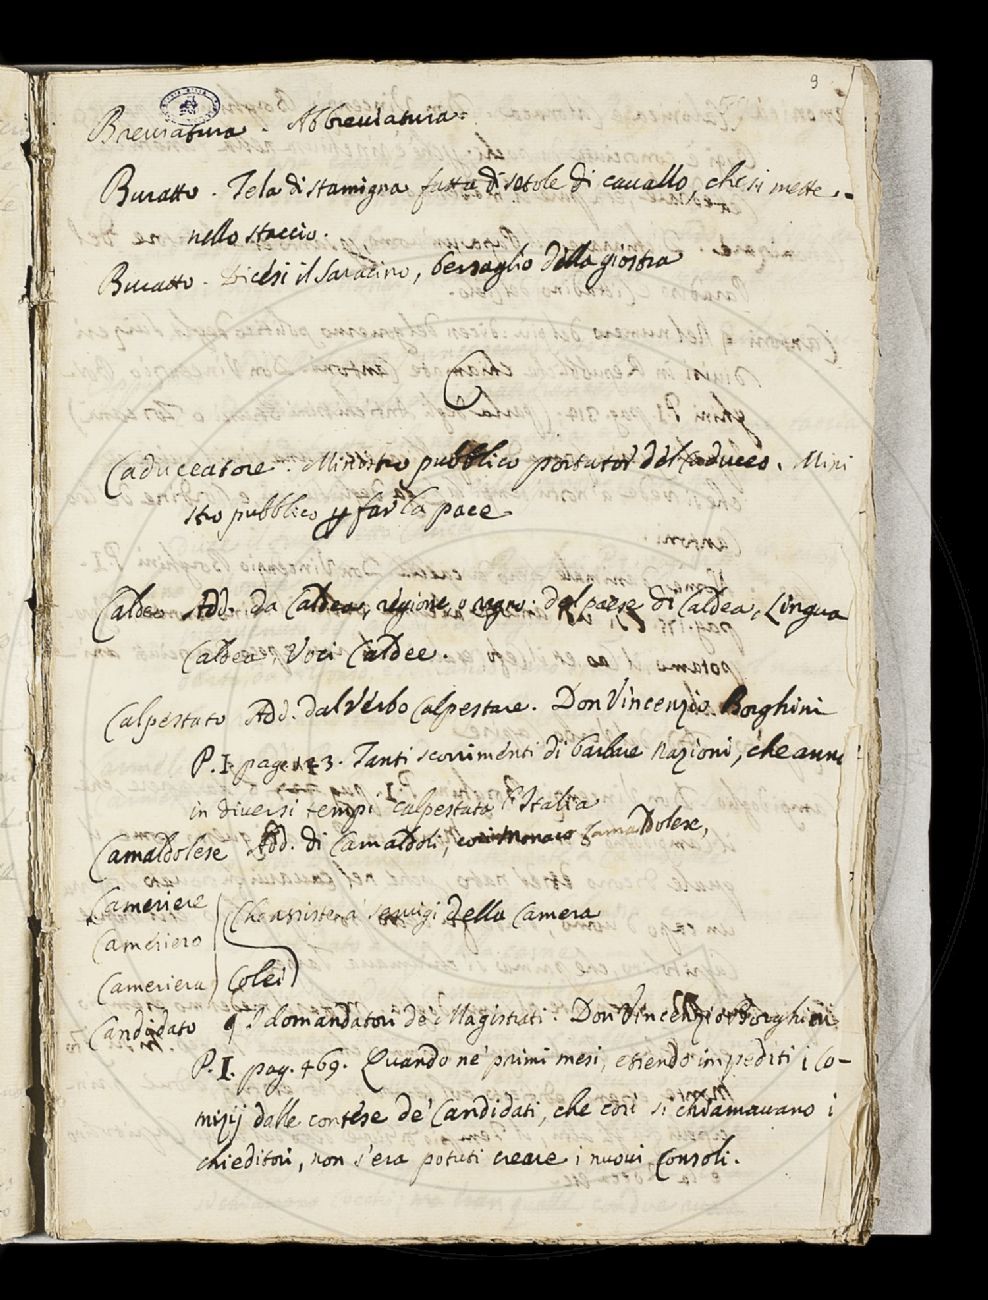 9
Breviatura. Abbreviatura.
Buratto. Tela di stamigna fatta di setole di cavallo, che si mette
nello staccio.
Buratto. Dicesi il Saracino, bersaglio della giostra
C
Caduceatore. Ministro pubblico portator del Caduceo. Mini
stro pubblico p far la pace
Caldeo Add. da Caldea, regione, o regno. del paese di Caldea, Lingua
Caldea, Voci Caldee.
Calpestato Add. dal Verbo Calpestare. Don Vincenzio Borghini
P. I. pag. 123. Tanti scorrimenti di barbare nazioni, che anno
in diversi tempi calpestata l'Italia
Camaldolese Add. di Camaldoli, Monaco Camaldolese,
Cameriere
Cameriero
Che assiste a' servigi della Camera
Cameriera Colei
Candidato I domandatori de' Magistrati. Don Vincenzio Borghini
P. I. pag. 469. Quando ne' primi mesi, essendo impediti i Co-
mizij dalle contese de' Candidati, che così si chiamavano i
chieditori, non s'era potuti creare i nuovi Consoli.